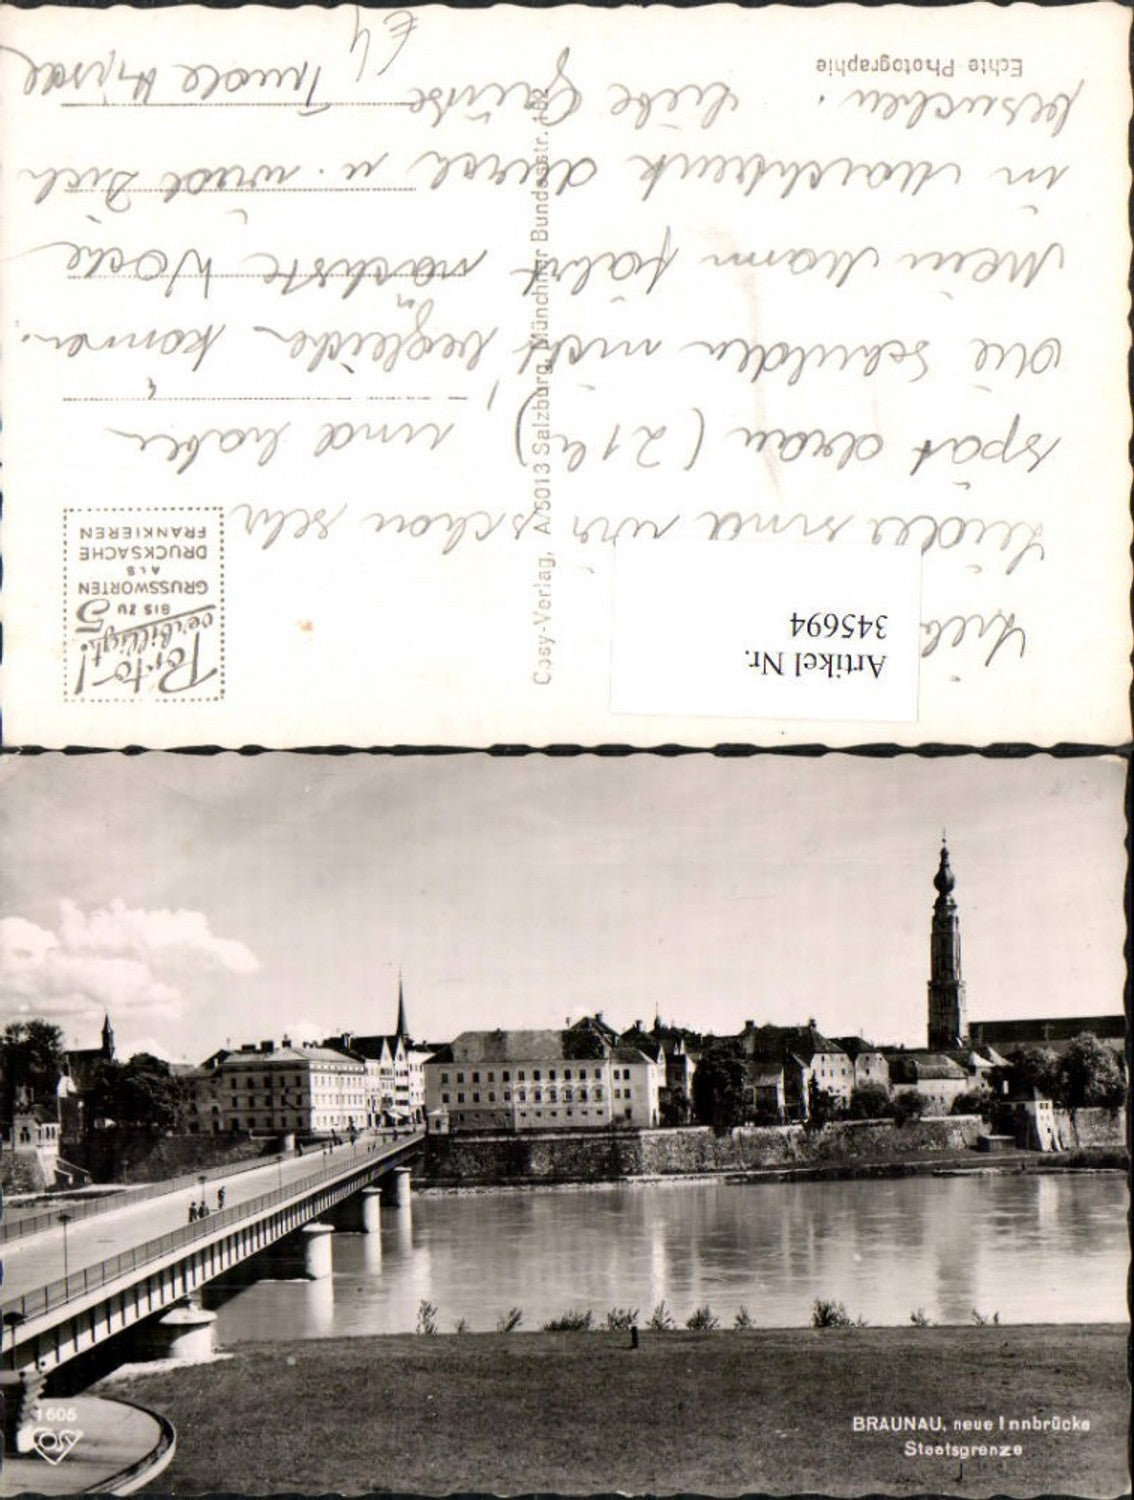 Artikel Nr.
345694
Leider sind wir schon sehr
spät dran (21h), und haben
die Schulden nicht begleichen können.
Mein Mann fährt nächste Woche
in Marchtrenk durch u. wird Dich
besuchen. Liebe Grüße Trude
Echte Photographie
Cosy-Verlag, A/5013 Salzburg, Münchner Bundesstr. 152
Porto-!
verbilligt!
BIS ZU 5
GRUSSWORTEN
ALS
DRUCKSACHE
FRANKIEREN
€4
1605
COSY
BRAUNAU, neue Innbrücke
Staatsgrenze